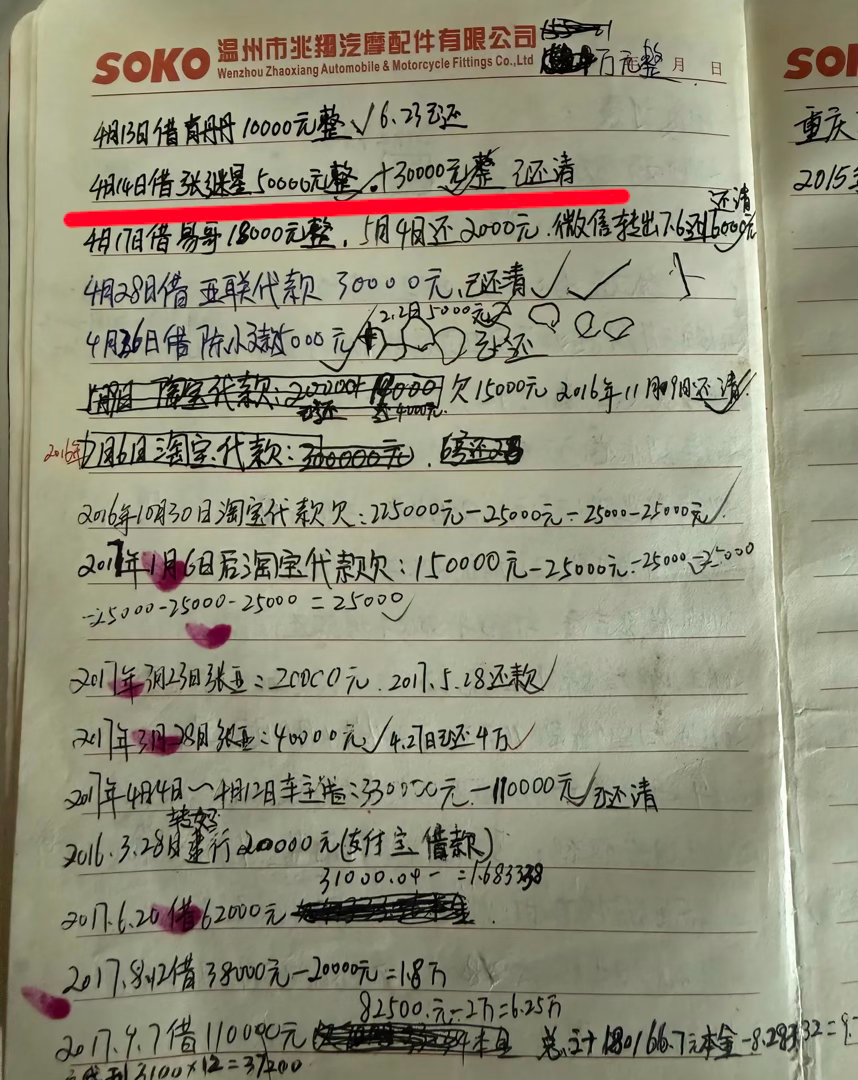 SOKO 温州市兆翔汽摩配件有限公司
Wenzhou Zhaoxiang Automobile & Motorcycle Fittings Co.,Ltd
万元整 月 日
4月13日借肖丹丹10000元整√ 6.23已还
4月14日借张继星50000元整√.+30000元整 已还清
还清
4月17日借易哥18000元整, 5月4日还2000元.微信转出7.6还16000元
4月28日借亚联代款30000元,已还清√√
2.2月5000元
借陈小 5000元√ 已还
淘宝代款: 欠15000元 2016年11月09日还清√
已还 4000元.
2016年7月6日淘宝代款:300000元.
2016年10月30日淘宝代款欠:225000元-25000元-25000-25000元√
2017年1月6日后淘宝代款欠:150000元-25000元-25000-25000
-25000-25000-25000=25000√
2017年3月23日张亚:20000元.2017.5.28还款√
2017年3月28日张亚:40000元√4.27日已还4万√
2017年4月4日~4月12日车主借:330000元-110000元√已还清
2016.3.28日 行20000元(支付宝借款)
31000.04- =1.683338
2017.6.20借62000元
2017.8.12借38000元-20000元=1.8万
82500.元-2万=6.25万
2017.9.7借110000元 总计180166.7元本金-8.28
3100×12=37200
SO
重庆
2015